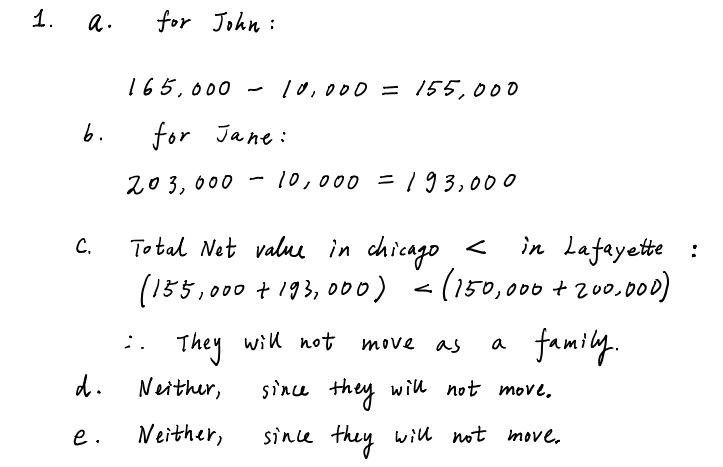 1. a. for John :
165,000 - 10,000 = 155,000
b. for Jane :
203,000 - 10,000 = 193,000
c. Total Net value in chicago < in Lafayette :
(155,000 + 193,000) < (150,000 + 200,000)
∴ They will not move as a family.
d. Neither, since they will not move.
e. Neither, since they will not move.